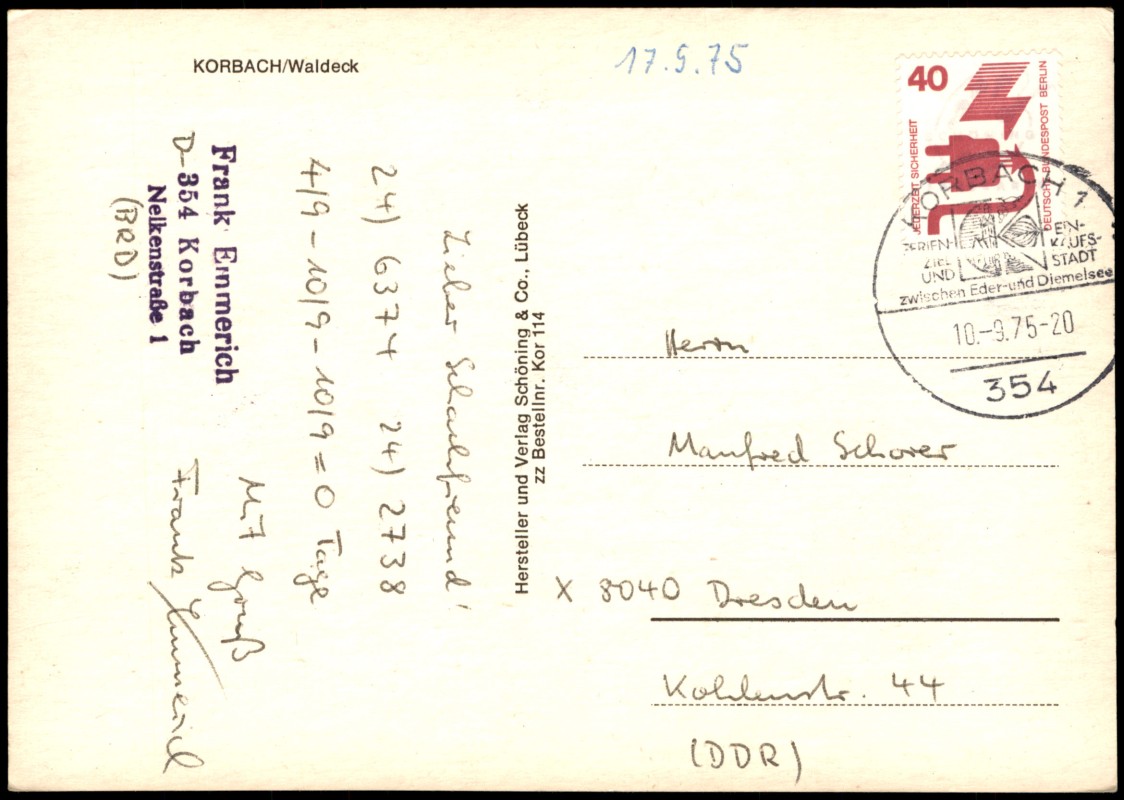 KORBACH/Waldeck
17.9.75
40
JEDERZEIT SICHERHEIT
DEUTSCHE BUNDESPOST BERLIN
KORBACH 1
FERIEN-
ZIEL
UND
EIN-
KAUFS-
STADT
zwischen Eder- und Diemelsee
10.-9.75-20
354
Lieber Schachfreund!
24) 6374 24) 2738
4/9 - 10/9 - 10/9 = 0 Tage
Mit Gruß
Frank Emmerich
Frank Emmerich
D-354 Korbach
Nelkenstraße 1
(BRD)
Hersteller und Verlag Schöning & Co., Lübeck
zz Bestellnr. Kor 114
Herrn
Manfred Schorer
X 8040 Dresden
Kohlenstr. 44
(DDR)